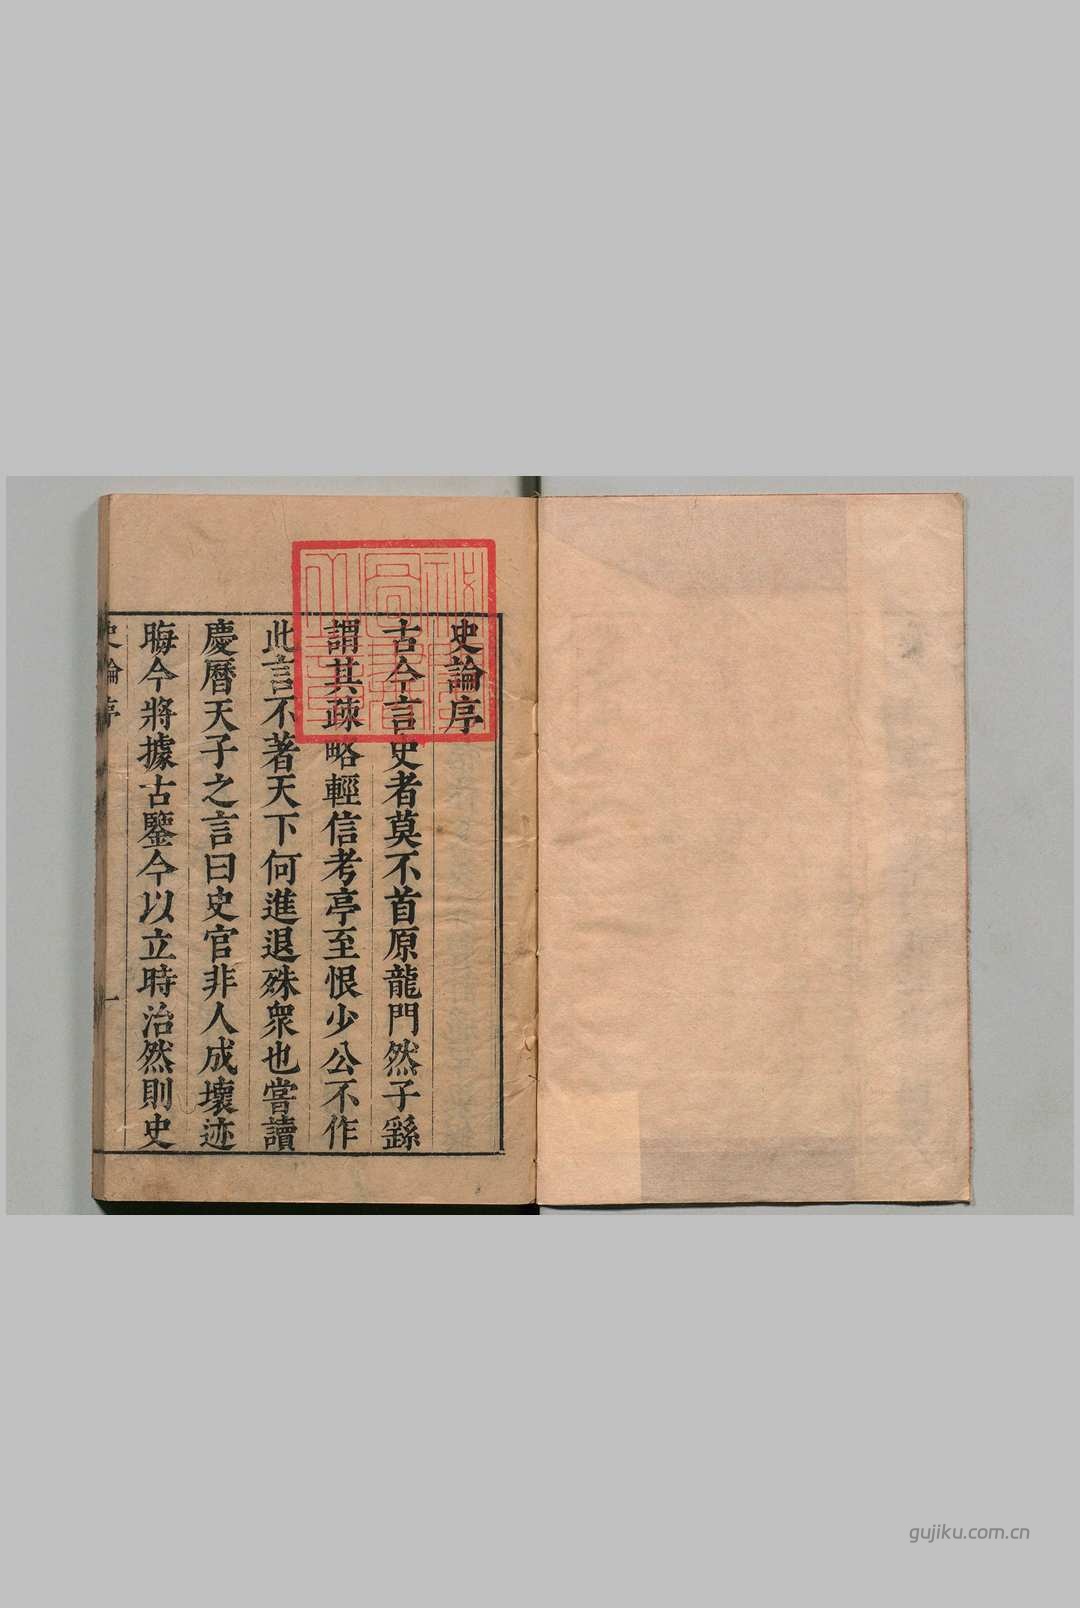 史論序
古今言史者莫不首原龍門然子繇
謂其疎略輕信考亭至恨少公不作
此言不著天下何進退殊衆也嘗讀
慶曆天子之言曰史官非人成壞迹
晦今將據古鑒今以立時治然則史
史論序
一
gujiku.com.cn